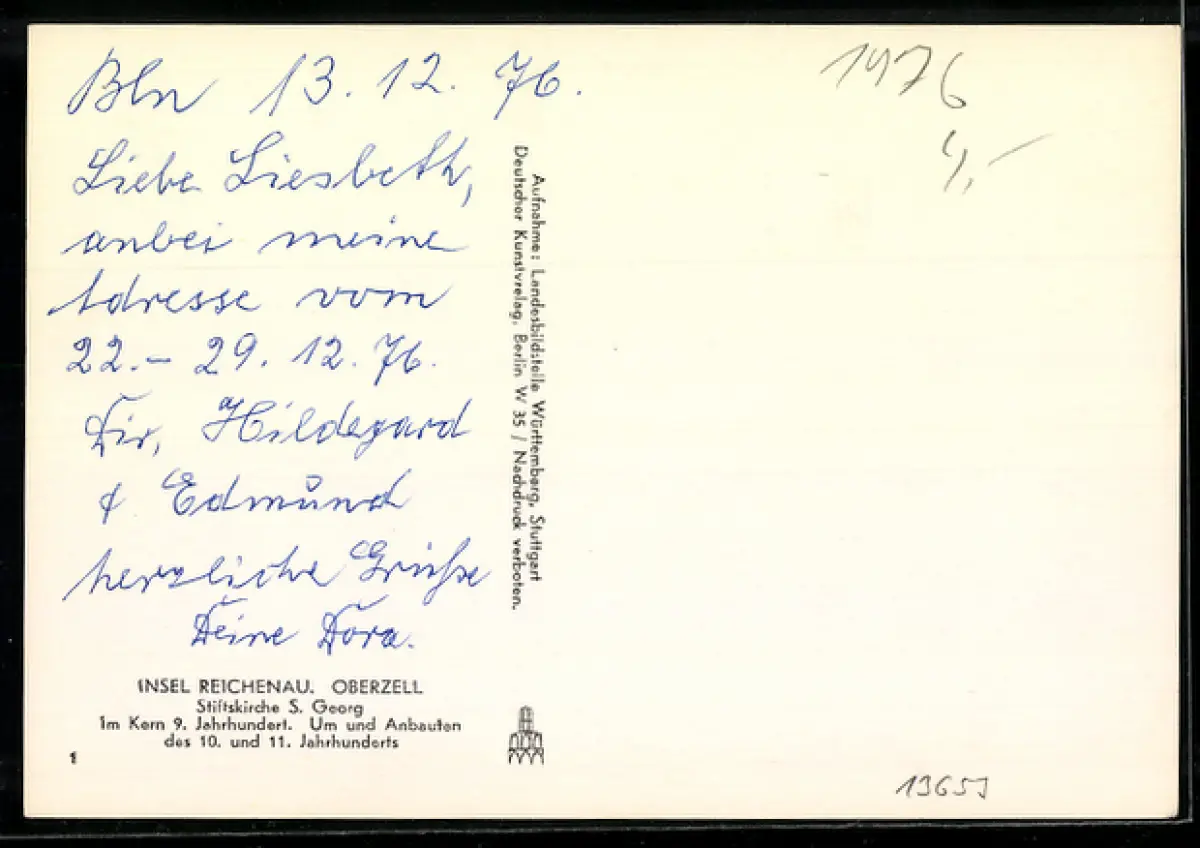 Bln 13. 12. 76.
Liebe Liesbeth,
anbei meine
Adresse vom
22.– 29. 12. 76.
Dir, Hildegard
& Edmund
herzliche Grüße
Deine Dora.
INSEL REICHENAU. OBERZELL
Stiftskirche S. Georg
Im Kern 9. Jahrhundert. Um und Anbauten
des 10. und 11. Jahrhunderts
1
Aufnahme: Landesbildstelle Württemberg, Stuttgart
Deutscher Kunstverlag, Berlin W 35 / Nachdruck verboten.
1976
4,–